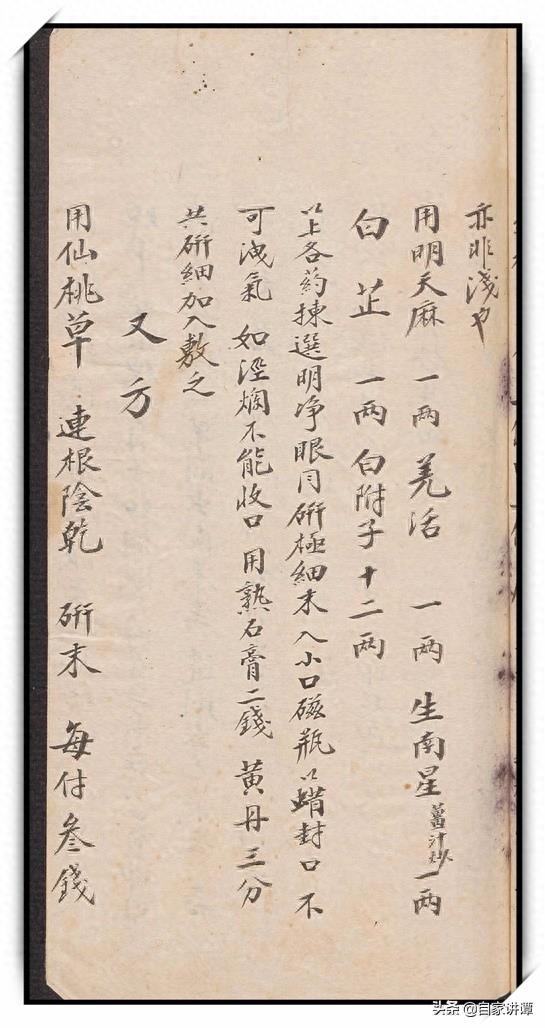 亦非淺也
用明天麻 一两 羌活 一两 生南星薑汁炒一两
白芷 一两 白附子十二两
以上各药揀選明净眼同研極細末入小口磁瓶以蜡封口不
可洩氣 如溼爛不能收口 用熟石膏二錢 黄丹三分
共研細加入敷之
又方
用仙桃草 連根陰乾 研末 每付叁錢
头条 @自家讲谭